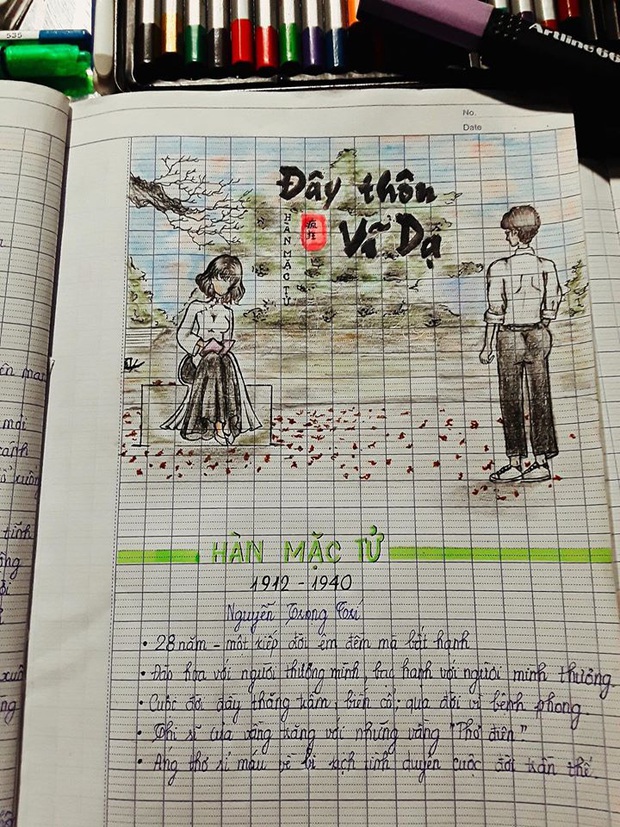 535
Artline 66
No.
Date
Đây thôn
Vĩ Dạ
HÀN MẶC TỬ
HÀN MẶC TỬ
1912 - 1940
Nguyễn Trọng Trí
• 28 năm - một kiếp đời êm đềm mà bất hạnh
• Đào hoa với người thương mình, bạc hạnh với người mình thương.
• Cuộc đời đầy thăng trầm, biến cố; qua đời vì bệnh phong.
• Thi sĩ của vầng trăng với những vầng "Thơ điên"
• Áng thơ rỉ máu về bi kịch tình duyên cuộc đời trần thế.